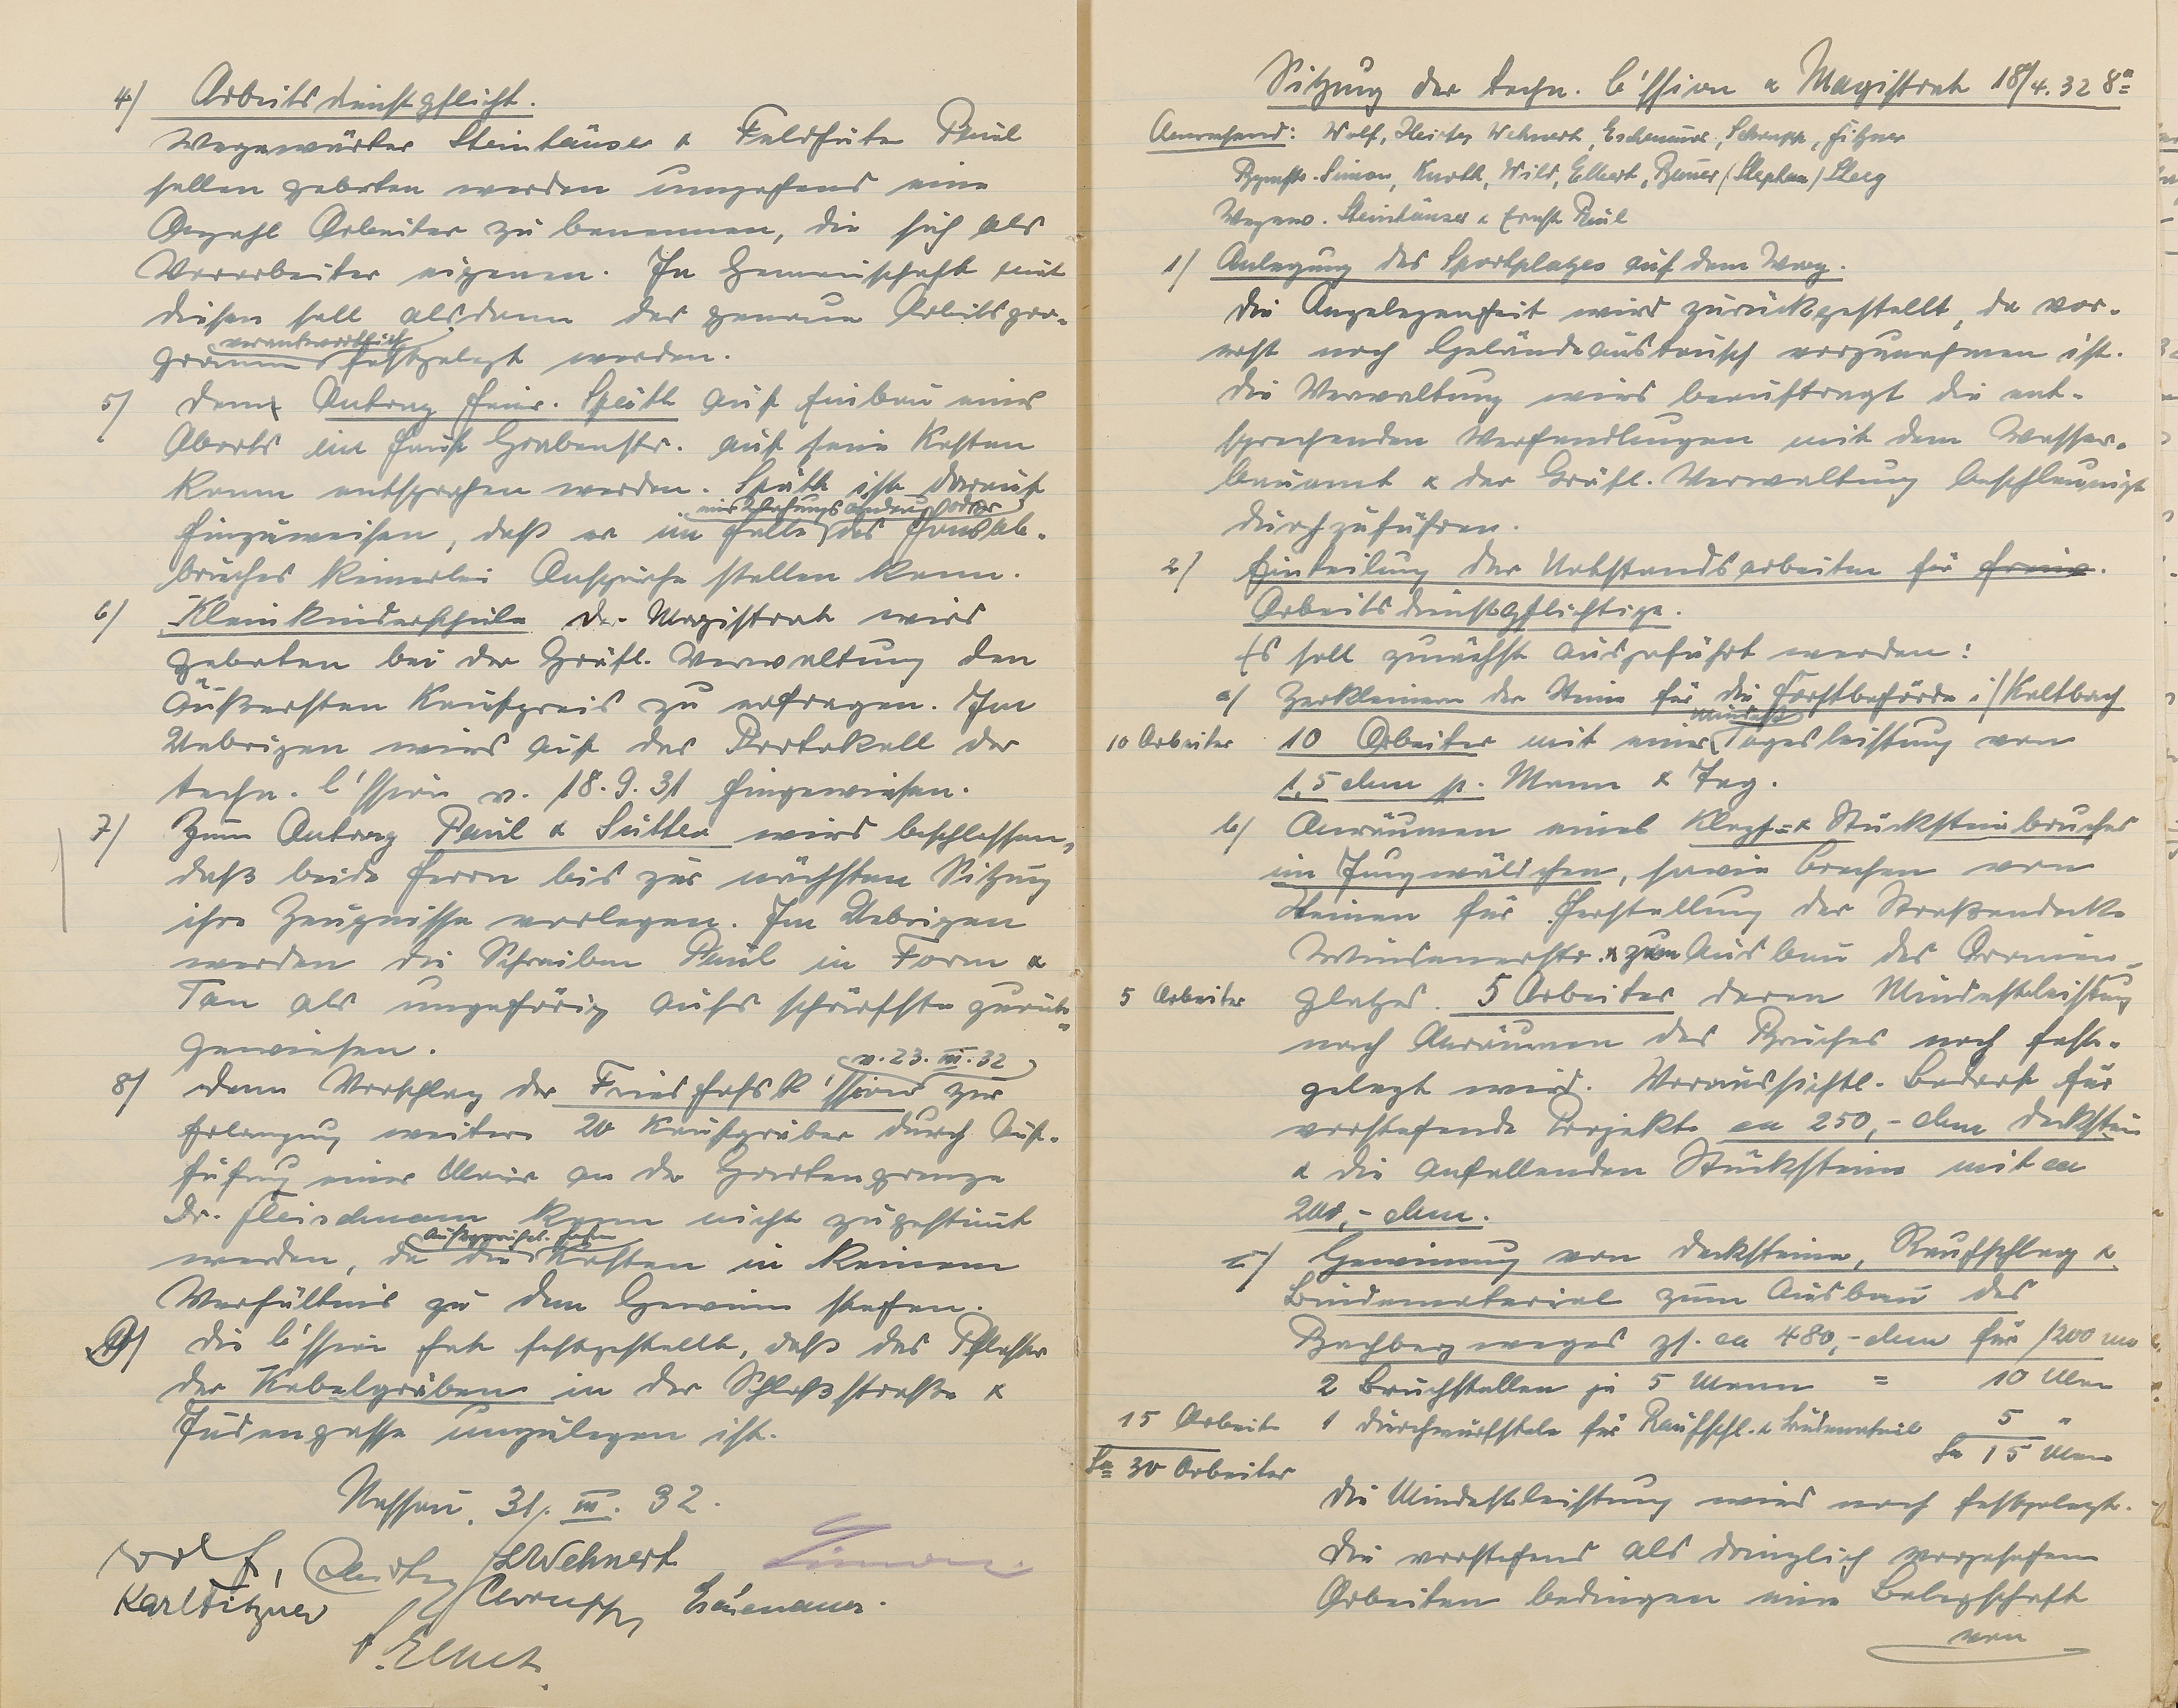 4) Arbeitsdienstpflicht.
Wegewärter Steinhäuser & Feldhüter Paul
sollen gebeten werden umgehend eine
Anzahl Arbeiter zu benennen, die sich als
Vorarbeiter eigenen. In Gemeinschaft mit
diesen soll alsdann das genaue Arbeitspro-
verantwortlich
gramm festgelegt werden.
5) Dem Antrag Heinr. Späth auf Einbau eines
Aborts im Haus Grabenstr. auf seine Kosten
kann entsprochen werden. Späth ist darauf
oder
hinzuweisen, daß er im Falle des Hausab-
bruches keinerlei Ansprüche stellen kann.
6) Kleinkinderschule Der Magistrat wird
gebeten bei der Gräfl. Verwaltung den
äußersten Kaufpreis zu erfragen. Im
Uebrigen wird auf das Protokoll der
techn. C'ssion v. 18.9.31 hingewiesen.
7) Zum Antrag Paul & Sutter wird beschlossen,
daß beide Herrn bis zur nächsten Sitzung
ihre Zeugnisse vorlegen. Im Uebrigen
werden die Schreiben Paul in Form &
Ton als ungehörig aufs schärfste zurück-
gewiesen.
v. 23. III. 32
8) Dem Vorschlag der Friedhofsk'ssion zur
Erlangung weiterer 20 Kaufgräber durch Auf-
führung einer Mauer an der Gartengrenze
Dr. Fleischmann kann nicht zugestimmt
werden, da die Kosten in keinem
Verhältnis zu dem Gewinn stehen.
9) Die C'ssion hat festgestellt, daß das Pflaster
der Kabelgräben in der Schloßstraße &
Judengasse umzulegen ist.
Nassau, 31. III. 32.
Wolf, LWehnert Simon
Karl Fitzner Schrupp Eschenauer.
Sitzung der techn. C'ssion & Magistrat 18/4.32 8
Anwesend: Wolf, Wehnert, Eschenauer, Schrupp, Fitzner
Bgmstr. Simon, Knoth, Wild, Elbert, Bauer (Stephan) Steeg
Wegew. Steinhäuser & Ernst Paul
1) Anlegung des Sportplatzes auf dem Wag.
Die Angelegenheit wird zurückgestellt, da vor-
erst noch Geländeaustausch vorzunehmen ist.
Die Verwaltung wird beauftragt die ent-
sprechenden Verhandlungen mit dem Wasser-
bauamt & der Gräfl. Verwaltung beschleunigt
durchzuführen.
2) Einteilung der Notstandsarbeiten für
Arbeitsdienstpflichtige.
Es soll zunächst ausgeführt werden:
a) Zerkleinern der Steine für die Forstbehörde i/Kaltbach
Mindest
10 Arbeiter 10 Arbeiter mit einer Tagesleistung von
1,5 cbm p. Mann & Tag.
b) Anräumen eines Klopf- & Stücksteinbruches
im Jungwäldchen, sowie brechen von
Steinen für Herstellung der Straßendecke
Windenerstr. & zum Ausbau des
5 Arbeiter platzes. 5 Arbeiter deren Mindestleistung
nach Anräumen des Bruches noch fest-
gelegt wird. Voraussichtl. Bedarf für
vorstehende Projekte ca 250,- cbm Decksteine
& die anfallenden Stücksteine mit ca
200,- cbm.
c) Gewinnung von Decksteinen, Rauhschlag &
Bindematerial zum Ausbau des
Bachbergweges zs. ca 480,- cbm für 1200 m
2 Bruchstellen je 5 Mann = 10 Mann
15 Arbeiter 1 Durchwurfstelle für Rauhschl. & Bindematerial 5 "
Sa 15 Mann
Sa 30 Arbeiter
Die Mindestleistung wird noch festgelegt.
Die vorstehend als dringlich vorgesehenen
Arbeiten bedingen eine Belegschaft
von